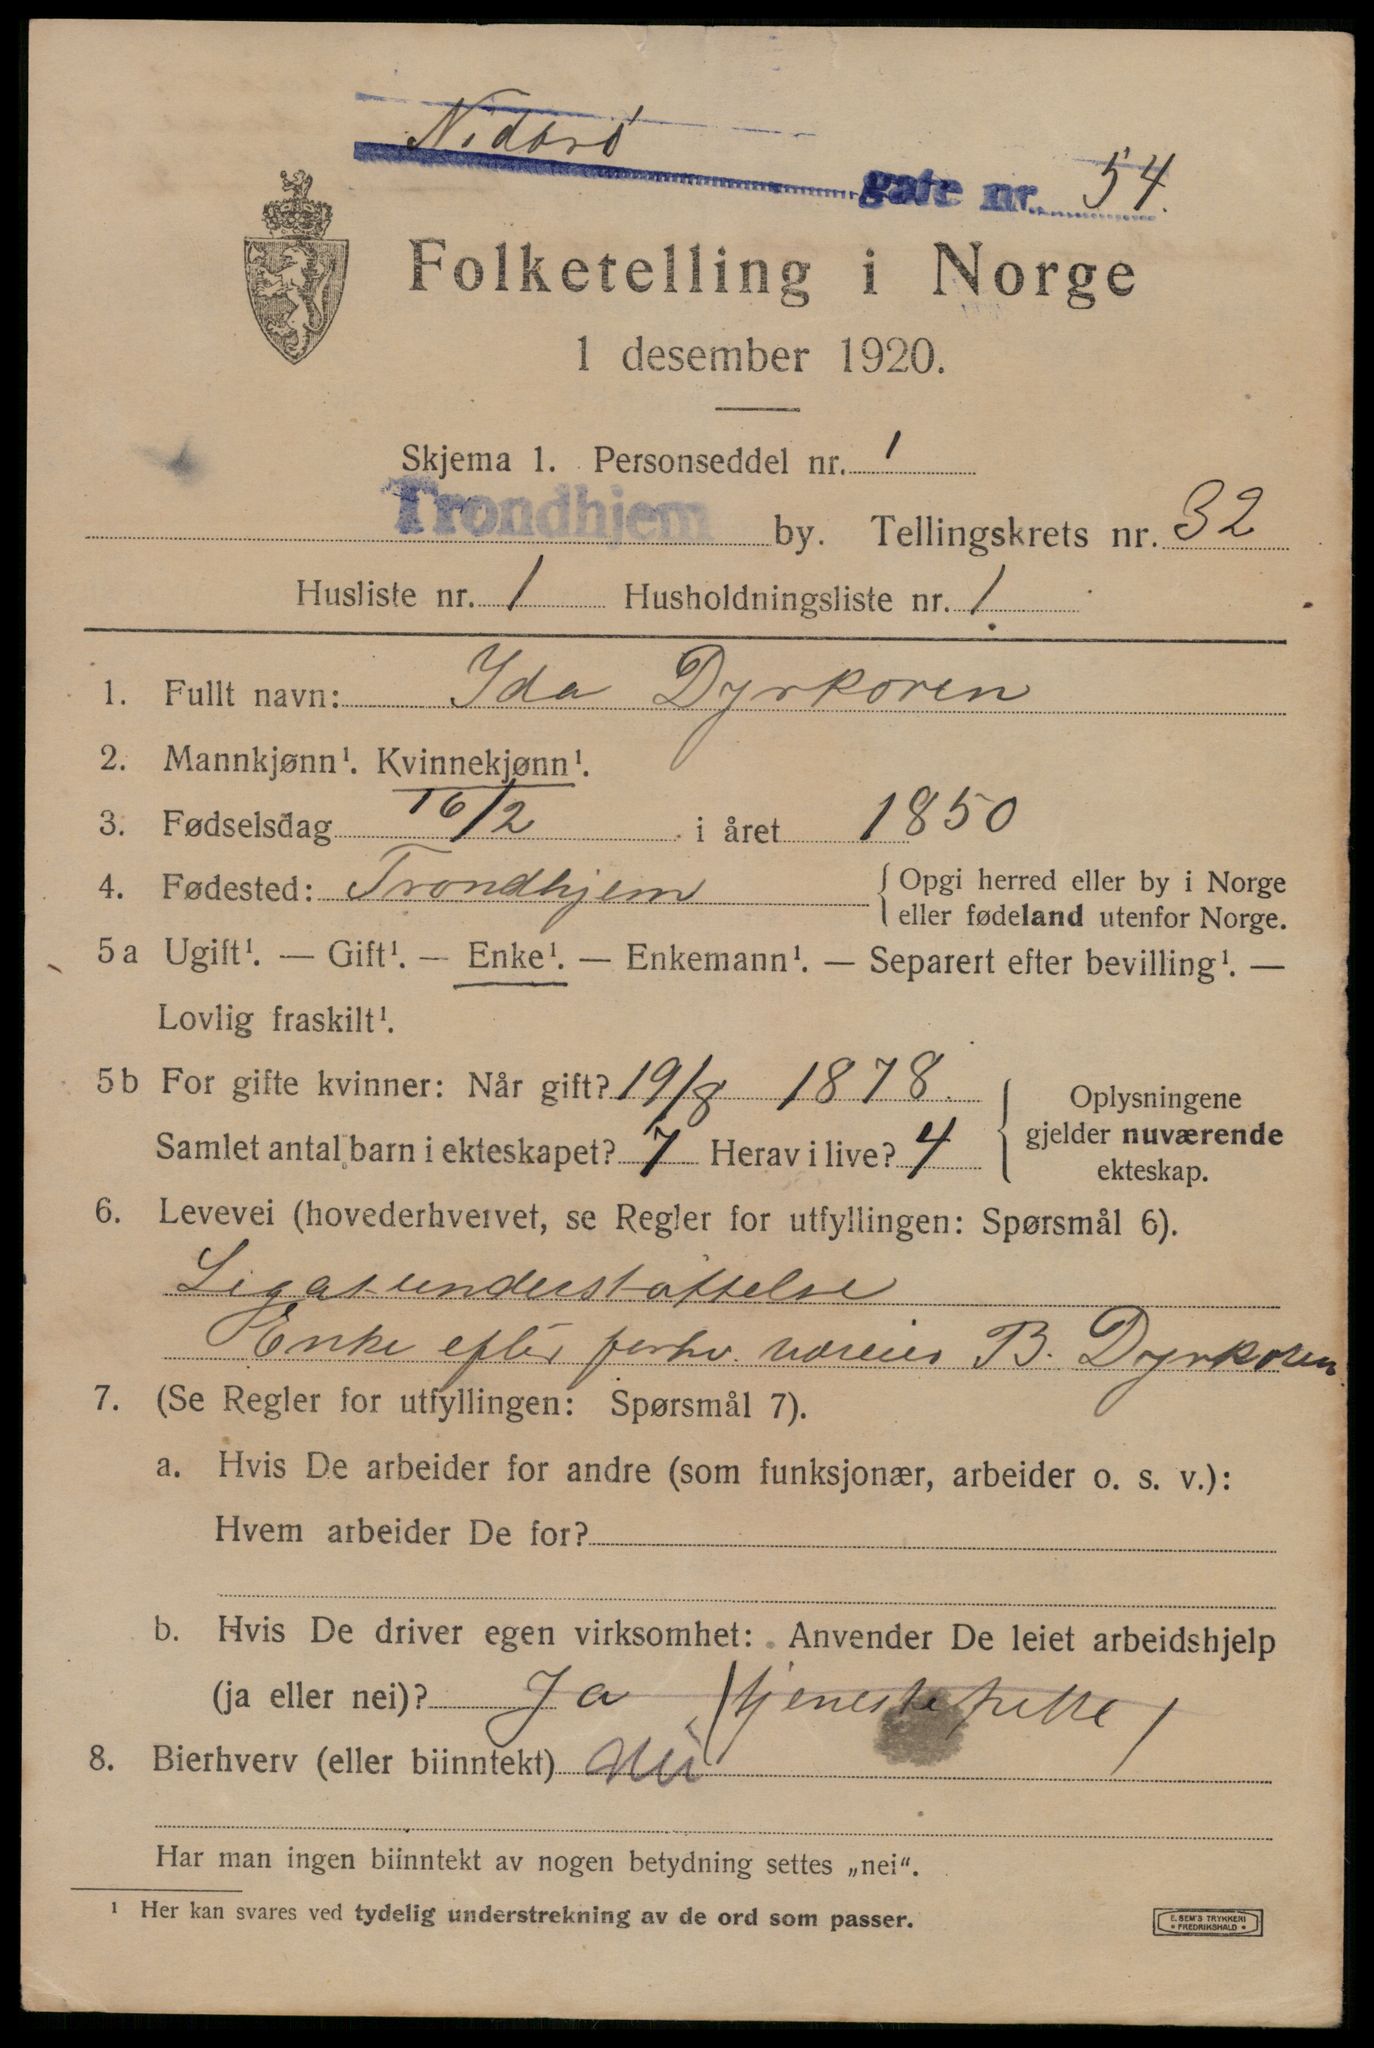 Nidarø
gate nr. 54.
Folketelling i Norge
1 desember 1920.
Skjema 1. Personseddel nr. 1
Trondhjem by. Tellingskrets nr. 32
Husliste nr. 1 Husholdningsliste nr. 1
1. Fullt navn: Ida Dyrkoren
2. Mannkjønn¹. Kvinnekjønn¹.
3. Fødselsdag 16/2 i året 1850
4. Fødested: Trondhjem { Opgi herred eller by i Norge
eller fødeland utenfor Norge.
5 a Ugift¹. — Gift¹. — Enke¹. — Enkemann¹. — Separert efter bevilling¹. —
Lovlig fraskilt¹.
5 b For gifte kvinner: Når gift? 19/8 1878.
Samlet antal barn i ekteskapet? 7 Herav i live? 4
Oplysningene
gjelder nuværende
ekteskap.
6. Levevei (hovederhvervet, se Regler for utfyllingen: Spørsmål 6).
Legatunderstøttelse
Enke efter B. Dyrkoren
7. (Se Regler for utfyllingen: Spørsmål 7).
a. Hvis De arbeider for andre (som funksjonær, arbeider o. s. v.):
Hvem arbeider De for?
b. Hvis De driver egen virksomhet: Anvender De leiet arbeidshjelp
(ja eller nei)? Ja (tjenestepike)
8. Bierhverv (eller biinntekt) Nei
Har man ingen biinntekt av nogen betydning settes „nei“.
¹ Her kan svares ved tydelig understrekning av de ord som passer.
E. SEM'S TRYKKERI
* FREDRIKSHALD *